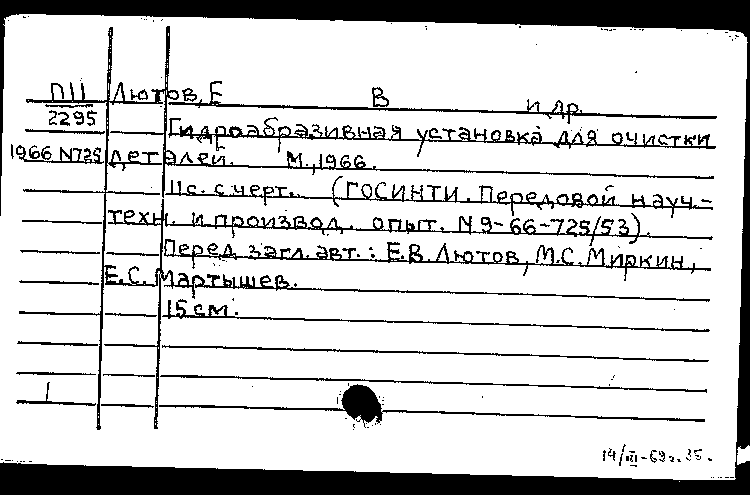 ПЦ Лютов, Е В и др.
2295
Гидроабразивная установка для очистки
1966 N725 деталей. М., 1966.
11с. с черт. (ГОСИНТИ. Передовой науч.-
техн. и производ. опыт. N 9-66-725/53).
Перед загл. авт.: Е.В. Лютов, М.С. Миркин,
Е.С. Мартышев.
15 см.
1
14/III-69г.